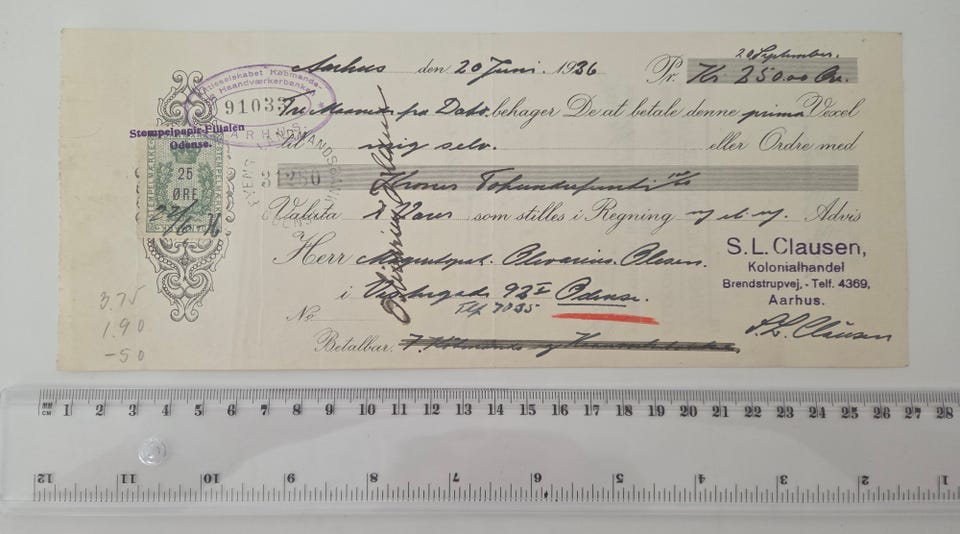 20 September.
Aarhus den 20 Juni 1936 Pr. Kr 250.00 Øre.
Aktieselskabet Købmands- & Haandværkerbanken
91033
AARHUS
Tre Maaned fra Dato behager De at betale denne prima Vexel
Stempelpapir-Filialen
Odense.
til mig selv. eller Ordre med
STEMPELMÆRKE
25
ØRE
22/6
31250
Kroner Tohundredefemti
Valuta i Varer som stilles i Regning Advis
Herr
i Vestergade 92 I Odense.
Tlf 7035
No
Betalbar:
S.L. Clausen,
Kolonialhandel
Brendstrupvej, - Telf. 4369,
Aarhus.
S.L. Clausen
3.75
1.90
-50
MM
CM
1 2 3 4 5 6 7 8 9 10 11 12 13 14 15 16 17 18 19 20 21 22 23 24 25 26 27 28
12 11 10 9 8 7 6 5 4 3 2 1